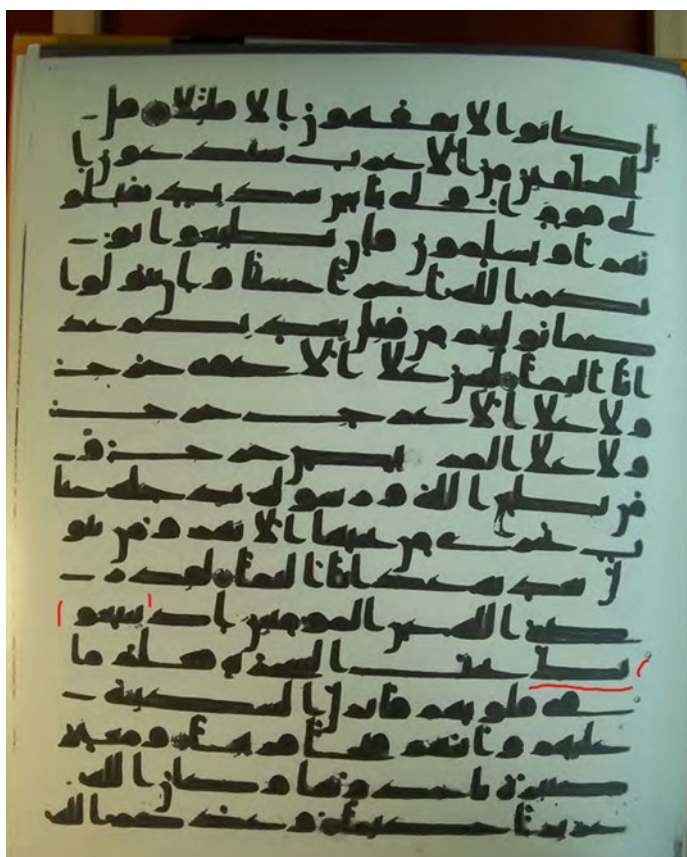 بل كانوا لا يفقهون الا قليلا قل
للمخلفين من الاعرب ستدعون ا
لى قوم اولى باس شديد تقتلو
نهم او يسلمون فان تطيعوا يو
تكم الله اجرا حسنا وان تتولوا
كما توليتم من قبل يعذبكم عذ
ابا اليما ليس على الاعمى حرج
ولا على الاعرج حرج
ولا على المريض حرج و
من يطع الله ورسوله يدخله جنا
ت تجرى من تحتها الانهر ومن يتو
ل يعذبه عذابا اليما لقد ر
ضى الله عن المومنين اذ يبيعو
نك تحت الشجرة فعلم ما
فى قلوبهم فانزل السكينة
عليهم واثبهم فتحا قريبا ومغنم
كثيرة ياخذونها وكان الله
عزيزا حكيما وعدكم الله